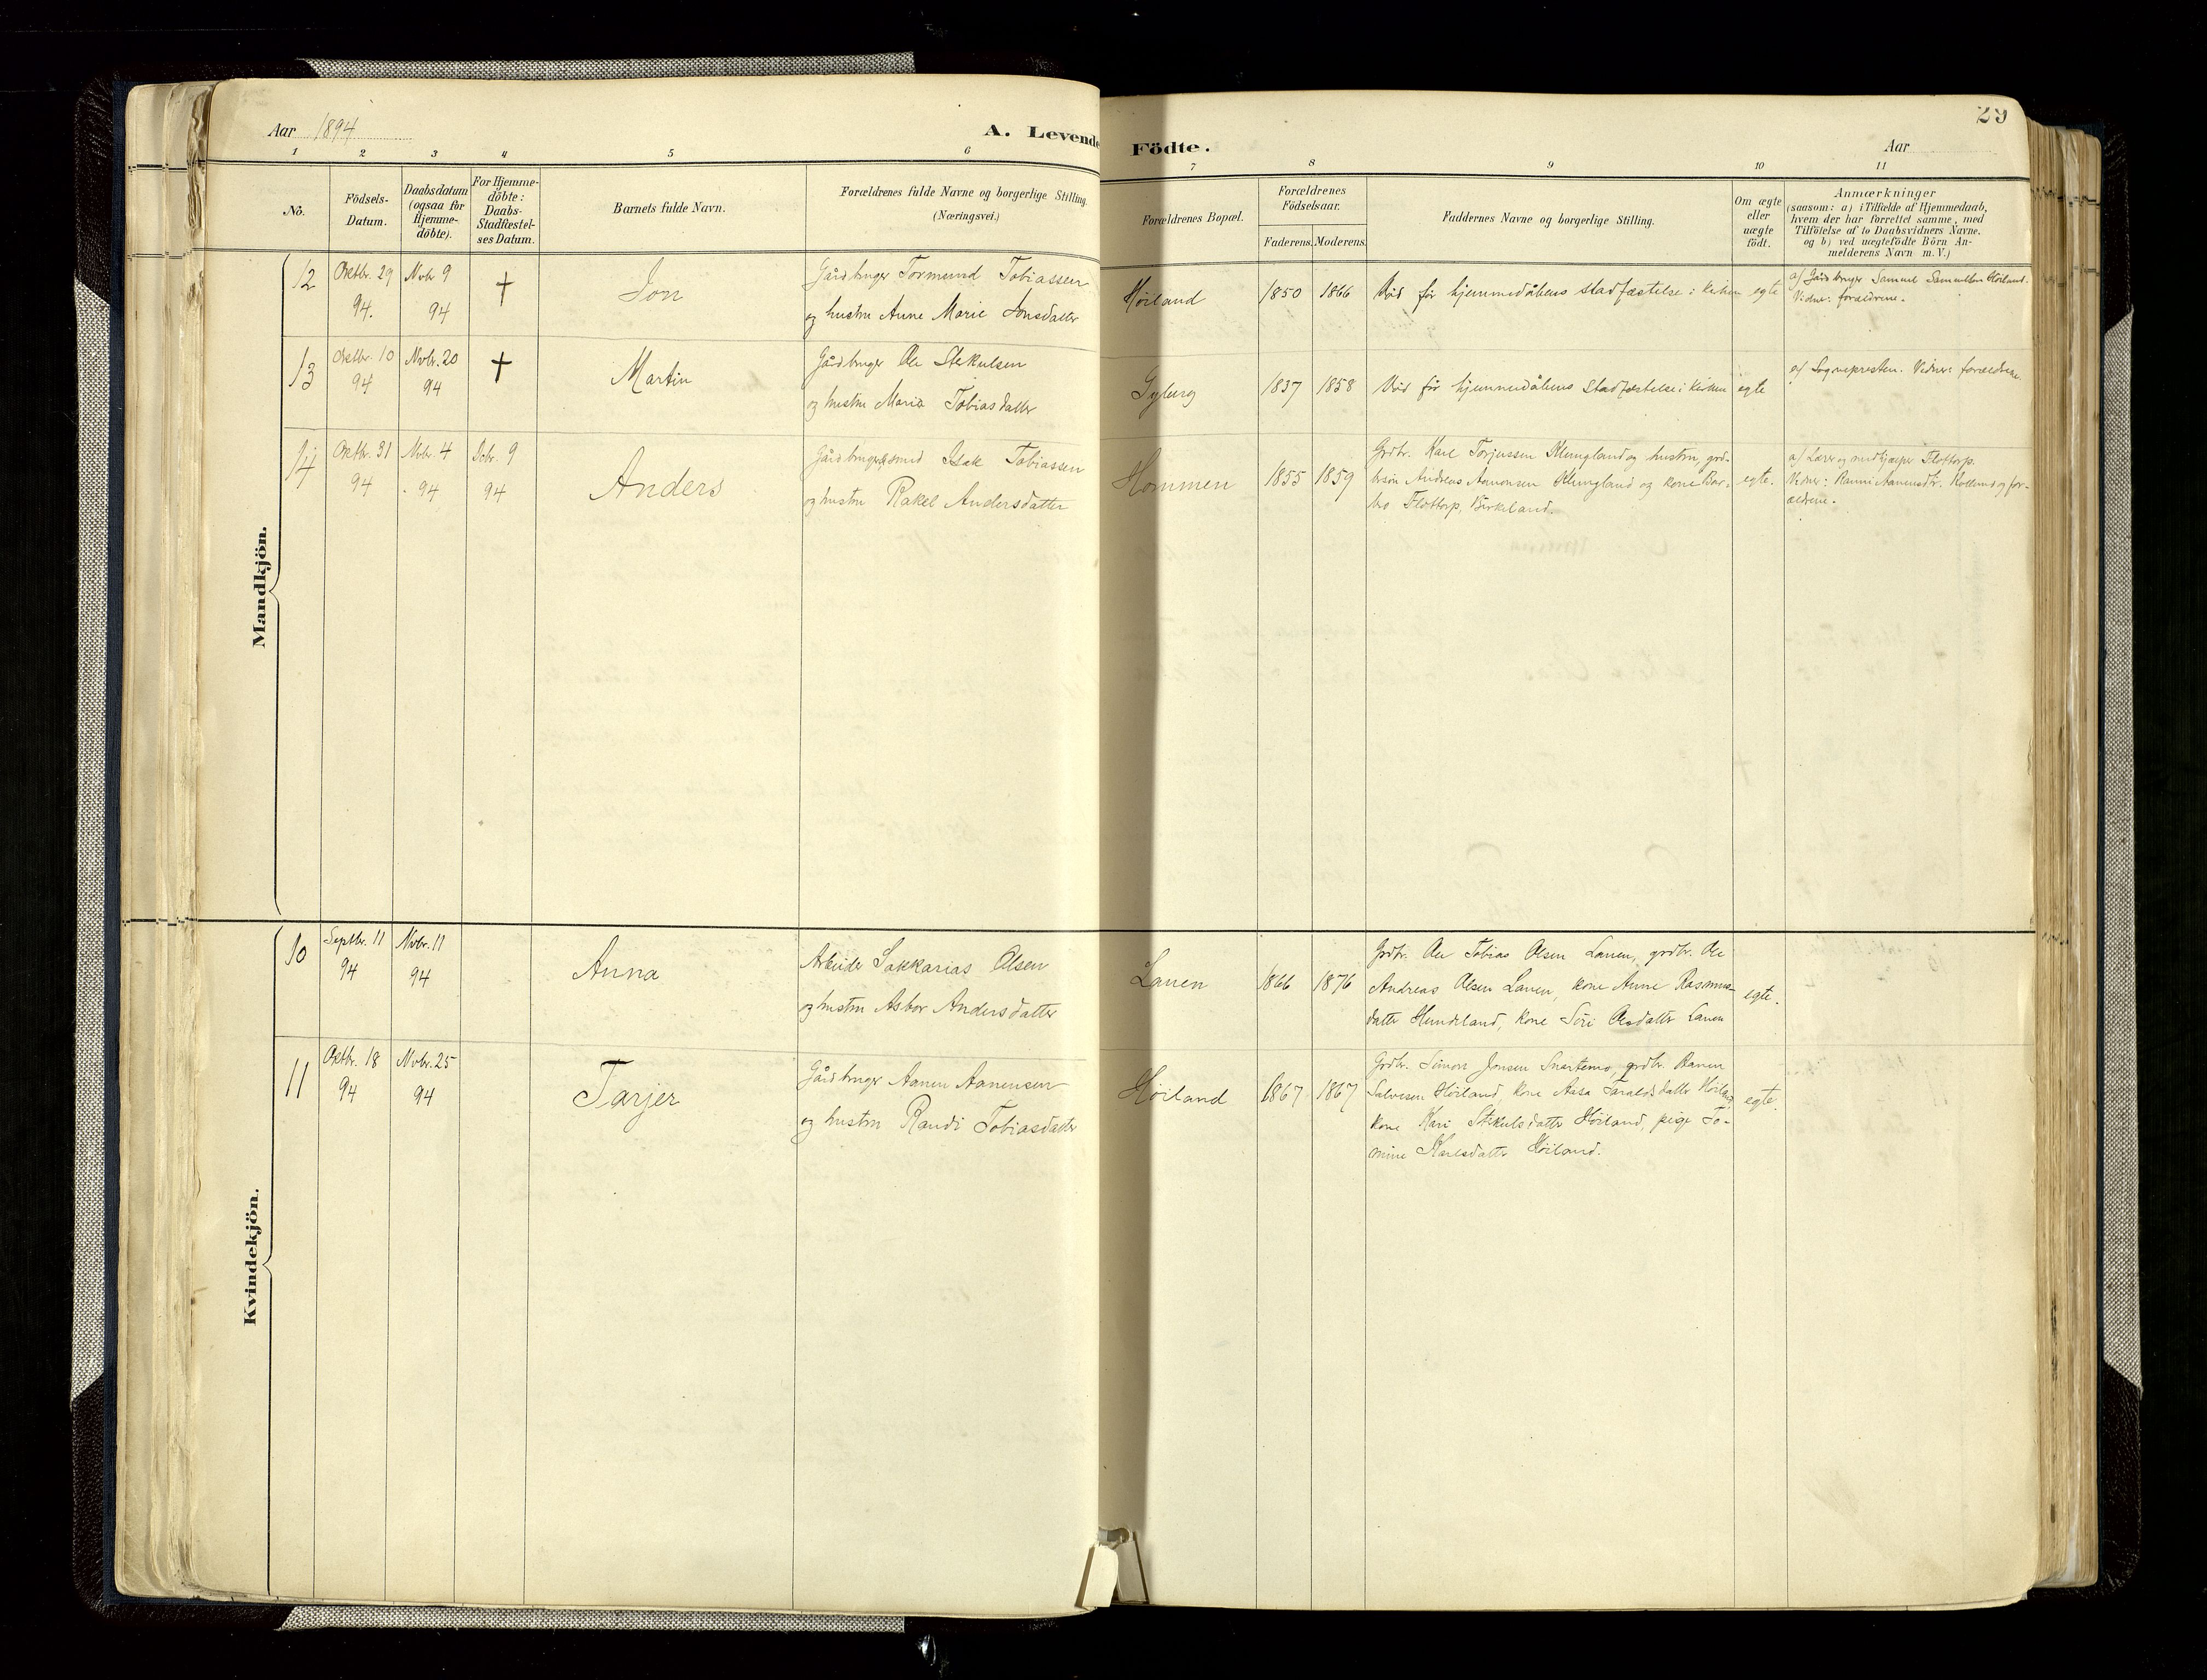 Aar 1894
A. Levende Födte.
Aar
29
1 2 3 4 5 6 7 8 9 10 11
No.
Födsels-
Datum.
Daabsdatum
(ogsaa for
Hjemme-
döbte).
For Hjemme-
döbte:
Daabs-
Stadfæstel-
ses Datum.
Barnets fulde Navn.
Forældrenes fulde Navne og borgerlige Stilling.
(Næringsvei.)
Forældrenes Bopæl.
Forældrenes
Födselsaar.
Faderens. Moderens.
Faddernes Navne og borgerlige Stilling.
Om ægte
eller
uægte
födt.
Anmærkninger
(saasom: a) i Tilfælde af Hjemmedaab,
hvem der har forrettet samme, med
Tilföielse af to Daabsvidners Navne.
og b) ved uægtefödte Börn An-
melderens Navn m.V.)
Mandkjön.
12
Oktbr. 29
94.
Nvbr 9
94
†
Jon
Gårdbruger Tormund Tobiassen
og hustru Anne Marie Jonsdatter
Høiland
1850
1866
Død før hjemmedåbens stadfæstelse i kirken
egte
a) Gårdbruger Samuel Samuelsen Høiland.
Vidner: forældrene.
13
Oktbr. 10
94
Nvbr. 20
94
†
Martin
Gårdbruger Ole Stekulsen
og hustru Maria Tobiasdatter
Gyberg
1837
1858
Død før hjemmedåbens stadfæstelse i kirken
egte
a) Sognepresten. Vidner: forældrene.
14
Oktbr. 31
94
Nvbr. 4
94
Dcbr. 9
94
Anders
Gårdbruger & smed Isak Tobiassen
og hustru Rakel Andersdatter
Hommen
1855
1859
Grdbr. Karl Torjussen Klungland og hustru, grd-
brsøn Andreas Aanonsen Klungland og kone Bar-
bro Flottorp, Birkeland.
egte.
a) Lærer og medhjælper Flottorp.
Vidner: Aanensdtr. og for-
ældrene.
Kvindekjön.
10
Septbr. 11
94
Nvbr. 11
94
Anna
Arbeider Sakkarias Olsen
og hustru Asbor Andersdatter
Lauen
1866
1876
Grdbr. Ole Tobias Olsen Lauen, grdbr. Ole
Andreas Olsen Lauen, kone Anne Rasmus-
datter Hundeland, kone Siri Olsdatter Lauen
egte.
11
Oktbr. 18
94
Nvbr. 25
94
Tarjer
Gårdbruger Aanen Aanensen
og hustru Randi Tobiasdatter
Høiland
1867
1867
Grdbr. Simon Jonsen Snartemo, grdbr. Aanen
Salvesen Høiland, kone Aasa Taraldsdatter Høiland,
kone Kari Stekulsdatter Høiland, pige To-
mine Karlsdatter Høiland.
egte.